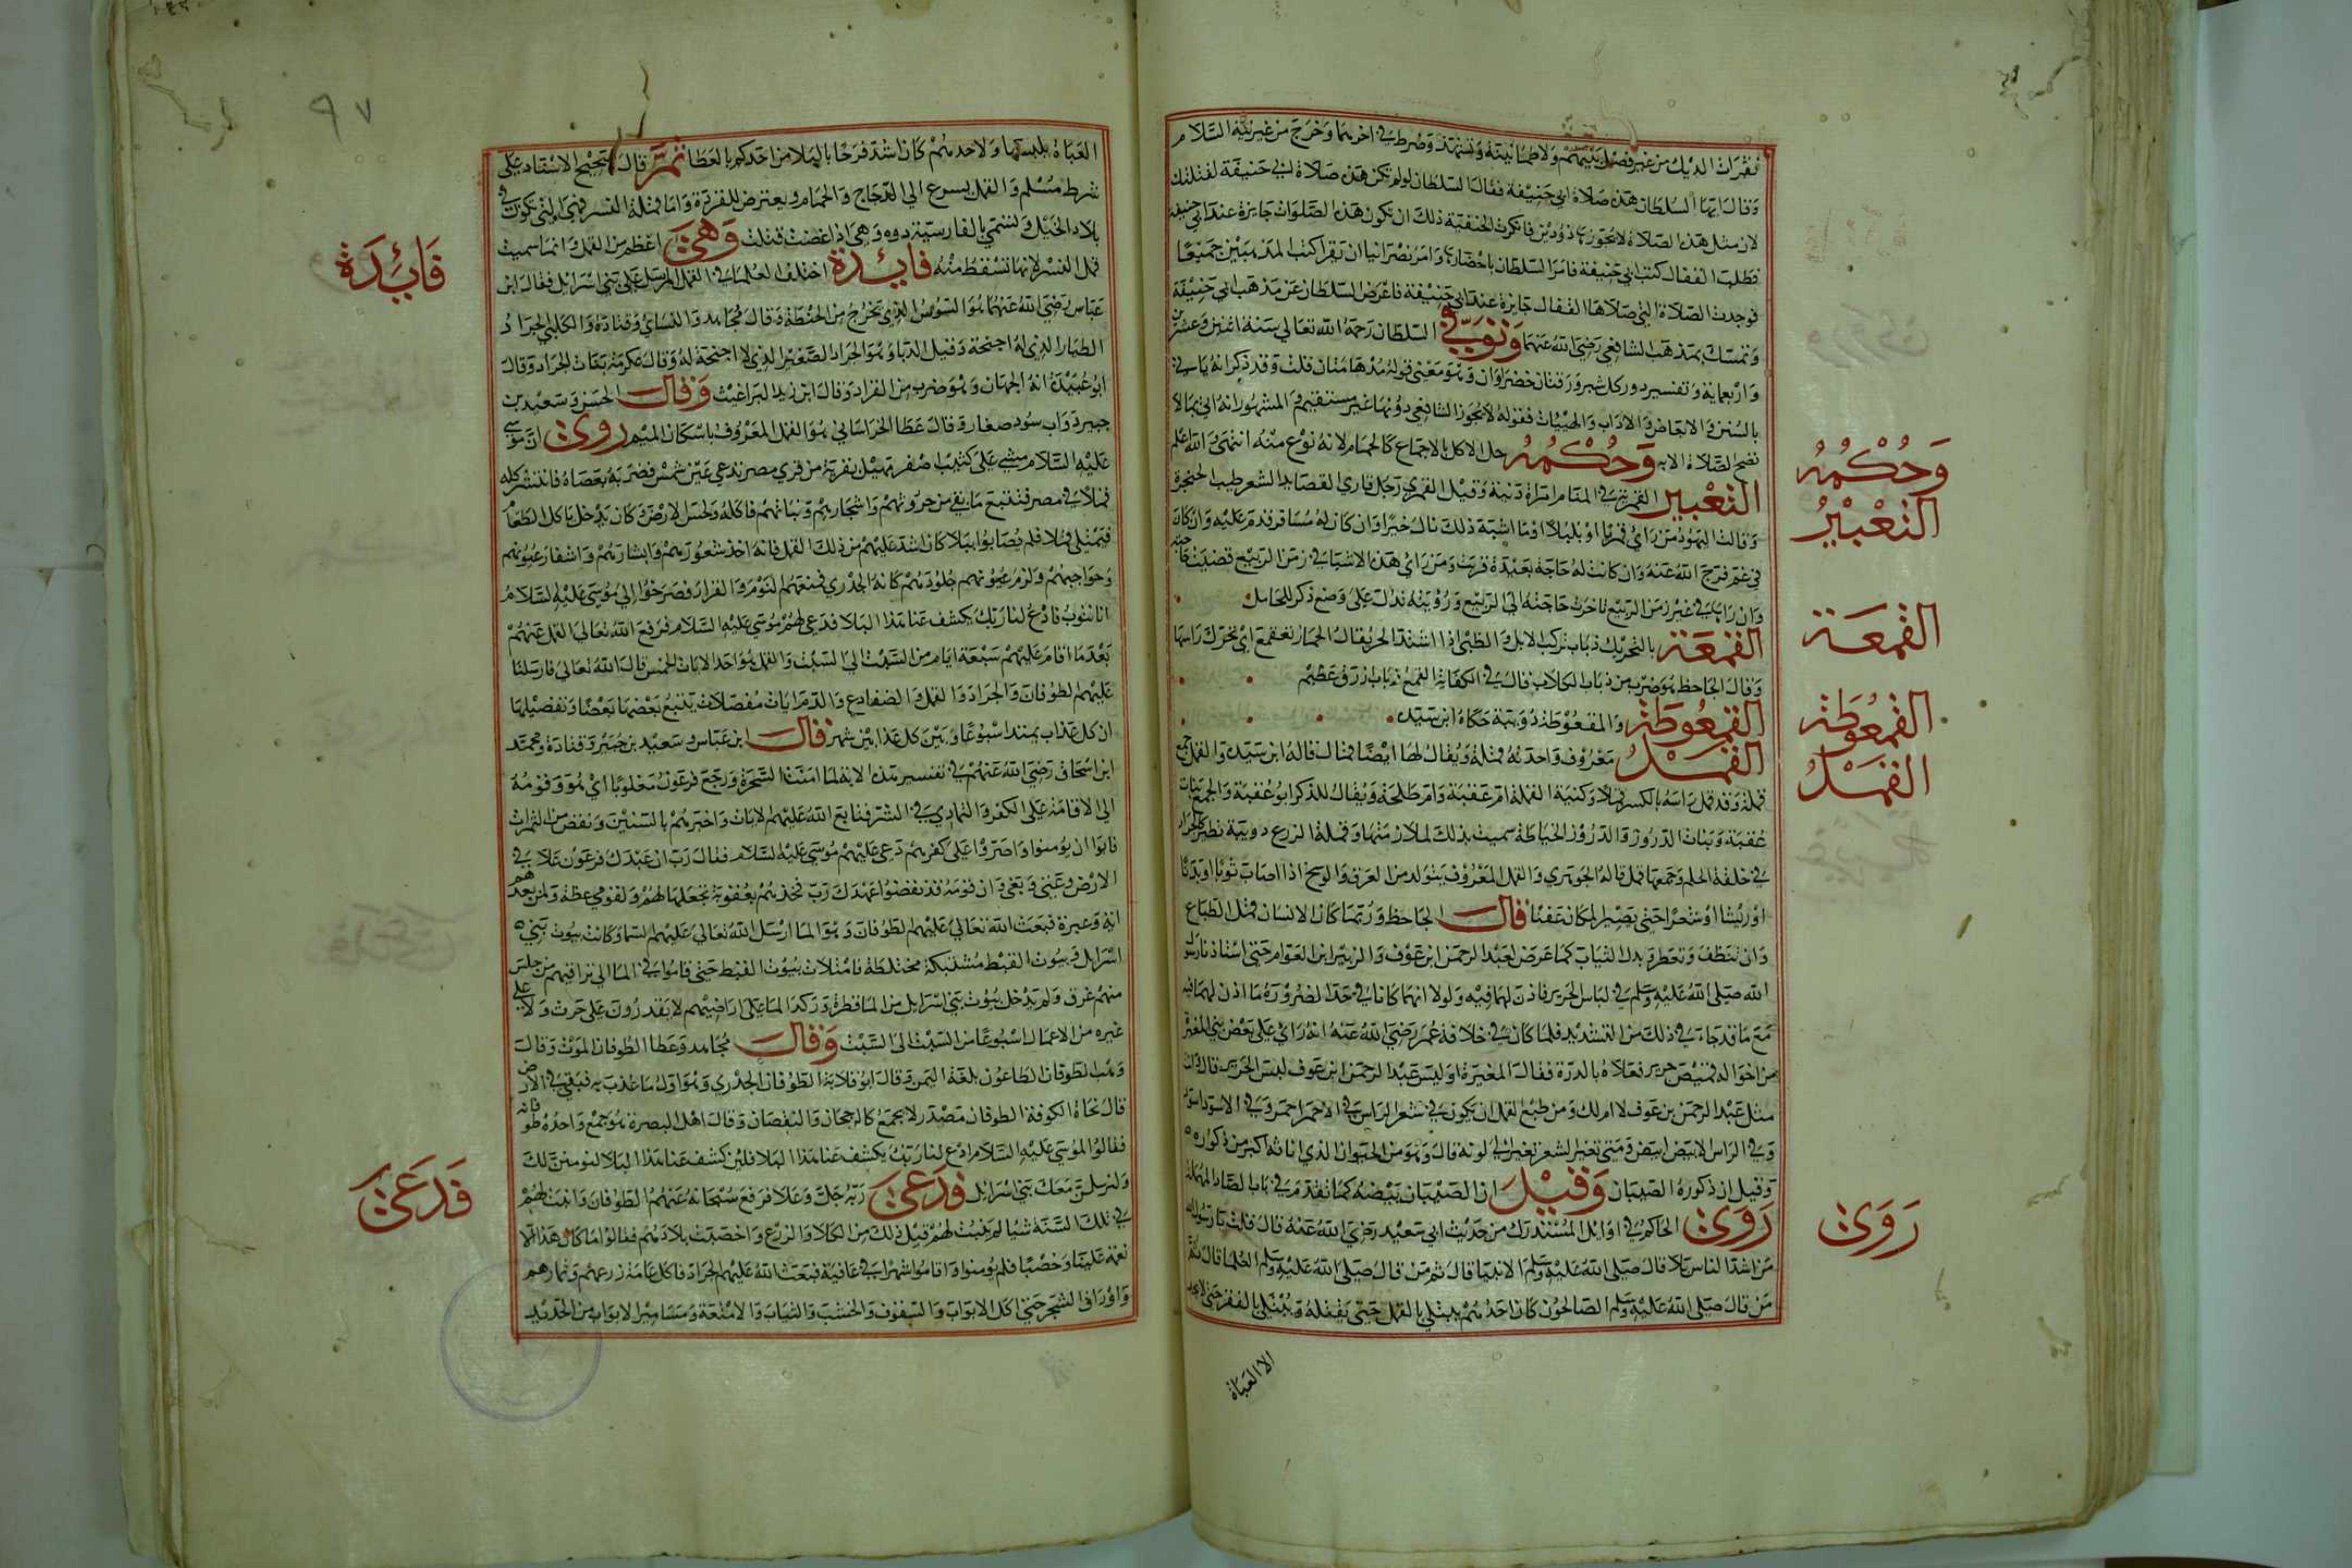 نقرات الديك من غير فصل بينهم ولا طمانينة وتشهد وضرط في اخرهما وخرج من غير نية السلام
وقال ايها السلطان هذه صلاة ابي حنيفة فقال السلطان لو لم تكن هذه صلاة ابي حنيفة لقتلتك
لان مثل هذه الصلاة لا يجوزها ذو دين فانكرت الحنفية ذلك ان تكون هذه الصلوات جايزة عند ابي حنيفة
فطلب القفال كتب ابي حنيفة فامر السلطان باحضارها وامر نصرانيا ان يقرا كتب المذهبين جميعا
فوجدت الصلاة التي صلاها القفال جايزة عند ابي حنيفة فاعرض السلطان عن مذهب ابي حنيفة
وتمسك بمذهب الشافعي رضي الله عنهما وتوفي السلطان رحمه الله تعالي سنة اثنين وعشرين
واربعماية وتفسير دور كل شبر ورقتان خضراوان وهو معني قوله مدهامتان قلت وقد ذكر انه ياتي
بالسنن والابعاض والاداب والهييات فقوله لا يجوز الشافعي دونها غير مستقيم والمشهور انه اتي بما لا
تصح الصلاة الا به وحكمه حل الاكل بالاجماع كالحمام لانه نوع منه انتهي والله اعلم
التعبير القمري في المنام امراة دينة وقيل القمري رجل قاري القصايد الشعر طيب الحنجرة
وقالت اليهود من راي قمريا او بلبلا او ما اشبه ذلك نال خيرا وان كان له مسافر قدم عليه وان كان
في غم فرج الله عنه وان كانت له حاجة بعيدة قربت ومن راي هذه الاشيا في زمن الربيع قضيت حاجته
وان راها في غير زمن الربيع تاخرت حاجته الي الربيع ورؤيته تدل علي وضع ذكر للحامل
القمعة بالتحريك ذباب تركب الابل والظبي اذا اشتد الحر يقال الحمار تقمع اي تحرك راسها
وقال الجاحظ هو ضرب من ذباب الكلاب قال في الكفاية القمع ذباب ازرق عظيم
القمعوطة والمقعوطة دويبة حكاه ابن سيده
القمل معروف واحدته قملة ويقال لها ايضا قمال قاله ابن سيده والقمل جمع
قملة وقد قمل راسه بالكسر قملا وكنية القملة ام عقبة وام طلحة ويقال للذكر ابو عقبة والجمع بنات
عقبة وبنات الدروز والدروز الخياطة سميت بذلك لملازمتها وقملة الزرع دويبة تطير كالجراد
في خلقة الحلم وجمعها قمل قاله الجوهري والقمل المعروف يتولد من العرق والوسخ اذا اصاب ثوبا او بدنا
او ريشا او شعرا حتي يصير المكان عفنا قال الجاحظ وربما كان الانسان قمل الطباع
وان تنظف وتعطر وبدل الثياب كما عرض لعبد الرحمن ابن عوف والزبير ابن العوام حتي استاذنا رسول
الله صلي الله عليه وسلم في لباس الحرير فاذن لهما فيه ولولا انهما كانا في حد الضرورة ما اذن لهما فيه
مع ما قد جاء في ذلك من التشديد فلما كان في خلافة عمر رضي الله عنه انه راي علي بعض بني المغيرة
من اخواله قميص حرير فعلاه بالدرة فقال المغيرة اوليس عبد الرحمن ابن عوف لبس الحرير قال وانت
مثل عبد الرحمن بن عوف لا ام لك ومن طبع القمل ان يكون في شعر الراس في الاحمر احمر وفي الاسود اسود
وفي الراس الابيض ابيض ومتي تغير الشعر تغير الي لونه قال وهو من الحيوان الذي اناثه اكبر من ذكوره
وقيل ان ذكوره الصيبان وقيل ان الصيبان بيضه كما تقدم في باب الصاد المهملة
روي الحاكم في اوايل المستدرك من حديث ابي سعيد رضي الله عنه قال قلت يا رسول الله
من اشد الناس بلا قال صلي الله عليه وسلم الانبيا قال ثم من قال صلي الله عليه وسلم العلما قال ثم
من قال صلي الله عليه وسلم الصالحون كان احدهم يبتلي بالقمل حتي يقتله ويبتلي بالفقر حتي لا يجد
الا العباة
وحكمه
التعبير
القمعة
القمعوطة
القمل
روي
٩٧
العباة يلبسها ولاحدهم كان اشد فرحا بالبلا من احدكم بالعطا ثم قال صحيح الاسناد علي
شرط مسلم والقمل يسرع الي الدجاج والحمام ويعترض للقردة واما قملة النسر فهي التي تكون في
بلاد الجبل وتسمي بالفارسية دوه وهي اذا عضت قتلت وهي اعظم من القمل وانما سميت
قمل النسر لانها تسقط منه فايدة اختلف العلما في القمل المرسل علي بني اسرايل فقال ابن
عباس رضي الله عنهما هو السوس الذي يخرج من الحنطة وقال مجاهد والنساي وقتادة والكلبي الجراد
الطيار الذي له اجنحة وقيل الدبا وهو الجراد الصغير الذي لا اجنحة له وقال عكرمة بنات الجراد وقال
ابو عبيدة انه الجمهان وهو ضرب من القراد وقال ابن زيد البراغيث وقال الحسن وسعيد بن
جبير دواب سود صغار وقال عطا الخراساني هو القمل المعروف باسكان الميم روي ان موسي
عليه السلام مشي علي كثيب اصفر مهيل بقرية من قري مصر تدعي عين شمس فضربه بعصاه فانتشر كله
قملا في مصر فتتبع ما بقي من حروثهم واشجارهم ونباتهم فاكله ولحس الارض وكان يدخل ياكل الطعام
فيمتلي قملا فلم يصابوا ببلا كان اشد عليهم من ذلك القمل فانه اخذ شعورهم وابشارهم واشفار عيونهم
وحواجبهم ولزم عيونهم جلودهم كانه الجدري فمنعهم النوم والقرار فصرخوا الي موسي عليه السلام
انا نتوب فادع لنا ربك يكشف عنا هذا البلا فدعي لهم موسي عليه السلام فرفع الله تعالي القمل عنهم
بعد ما اقام عليهم سبعة ايام من السبت الي السبت والقمل هو احد الايات الخمس قال الله تعالي فارسلنا
عليهم الطوفان والجراد والقمل والضفادع والدم ايات مفصلات يتبع بعضها بعضا وتفصيلها
ان كل عذاب يمتد اسبوعا وبين كل عذابين شهر فقال ابن عباس وسعيد بن جبير وقتادة ومحمد
ابن اسحاق رضي الله عنهم في تفسير هذه الاية لما امنت السحرة ورجع فرعون مغلوبا اي هو وقومه
الي الاقامة علي الكفر والتمادي في الشر فتابع الله عليهم الايات واخذهم بالسنين ونقص من الثمرات
فابوا ان يومنوا واصروا علي كفرهم دعي عليهم موسي عليه السلام فقال رب ان عبدك فرعون علا في
الارض وعتي وبغي وان قومه قد نقضوا عهدك رب فخذهم بعقوبة تجعلها لهم ولقومي عظة ولمن بعدهم
اية وعبرة فبعث الله تعالي عليهم الطوفان وهو الما ارسل الله تعالي عليهم السما وكانت بيوت بني
اسرايل وبيوت القبط مشتبكة مختلطة فامتلات بيوت القبط حتي قاموا في الما الي تراقيهم من جلس
منهم غرق ولم يدخل بيوت بني اسرايل من الما قطرة وركد الما علي اراضيهم لا يقدرون علي حرث ولا علي
غيره من الاعمال اسبوعا من السبت الي السبت وقال مجاهد وعطا الطوفان الموت وقال
وهب الطوفان الطاعون بلغة اليمن وقال ابو قلابة الطوفان الجدري وهو اول ما عذب به فبقي في الارض
قال نحاة الكوفة الطوفان مصدر لا يجمع كالرجحان والنقصان وقال اهل البصرة هو جمع واحده طوفانة
فقالوا لموسي عليه السلام ادع لنا ربك يكشف عنا هذا البلا فلين كشف عنا هذا البلا لنومنن لك
ولنرسلن معك بني اسرايل فدعي ربه جل وعلا فرفع سبحانه عنهم الطوفان وانبت لهم
في تلك السنة شيا لم ينبت لهم قبل ذلك من الكلا والزرع واخصبت بلادهم فقالوا ما كان هذا الا
نعمة علينا وخصبا فلم يومنوا واقاموا شهرا في عافية فبعث الله عليهم الجراد فاكل عامة زرعهم وثمارهم
واوراق الشجر حتي اكل الابواب والسقوف والخشب والثياب والامتعة ومسامير الابواب من الحديد
فايدة
فدعي